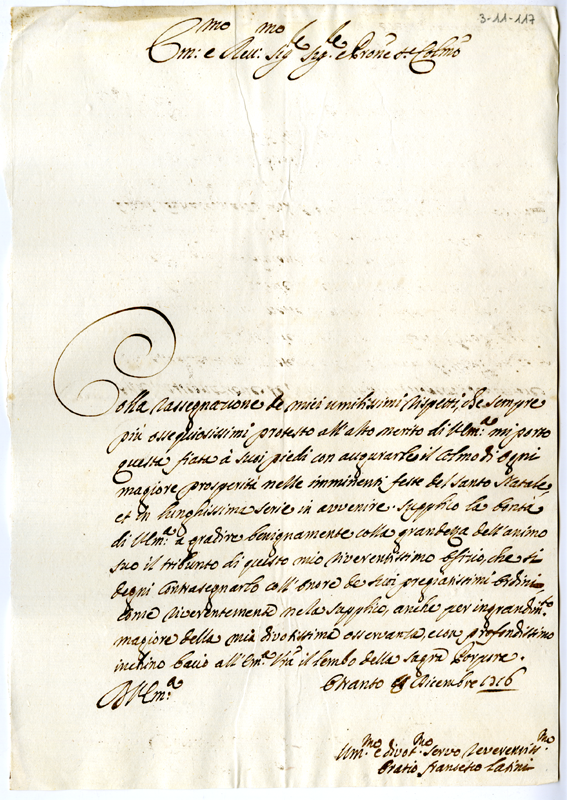 3-11-117
Em:mo e Reu:mo Sig:le Sig:le e Prone Colmo
Colla Rassegnazione de miei umilissimi rispetti, che sempre
più ossequiosissimi protesto all'alto merito di V. Em:a mi porto
questa fiata à suoi piedi con augurarle il Colmo di ogni
magiore prosperità nelle imminenti feste del Santo Natale,
et in lunghissima serie in avvenire. Supplico la bontà
di V. Em:a à gradire benignamente colla grandezza dell'animo
suo il tributo di questo mio riverentissimo Officio, che si
degni contrasegnarlo coll'onore de suoi pregiatissimi Ordini
come riverentemente nela supplico, anche per ingrandim:to
magiore della mia divotissima osservanza, e con profondissimo
inchino bacio all'Em:a Vra il lembo della sagra Porpora.
Di V. Em:a
Otranto Dicembre 1716
Um:mo e divot:mo Servo Reverentis:mo
Oratio Fransesco Latini